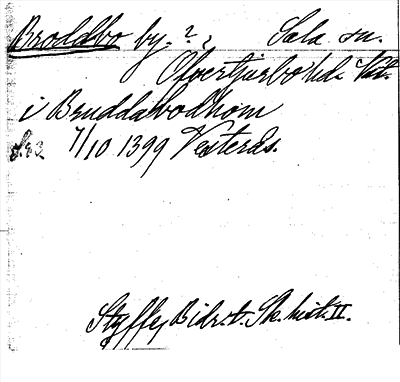 Broddbo by. ? Sala sn.
Öfvertjurbo hd. Vstm.
i Bruddabodhom
S. 82 7/10 1399 Vesterås.
Styffe, Bidr. t. Sk. hist. II.